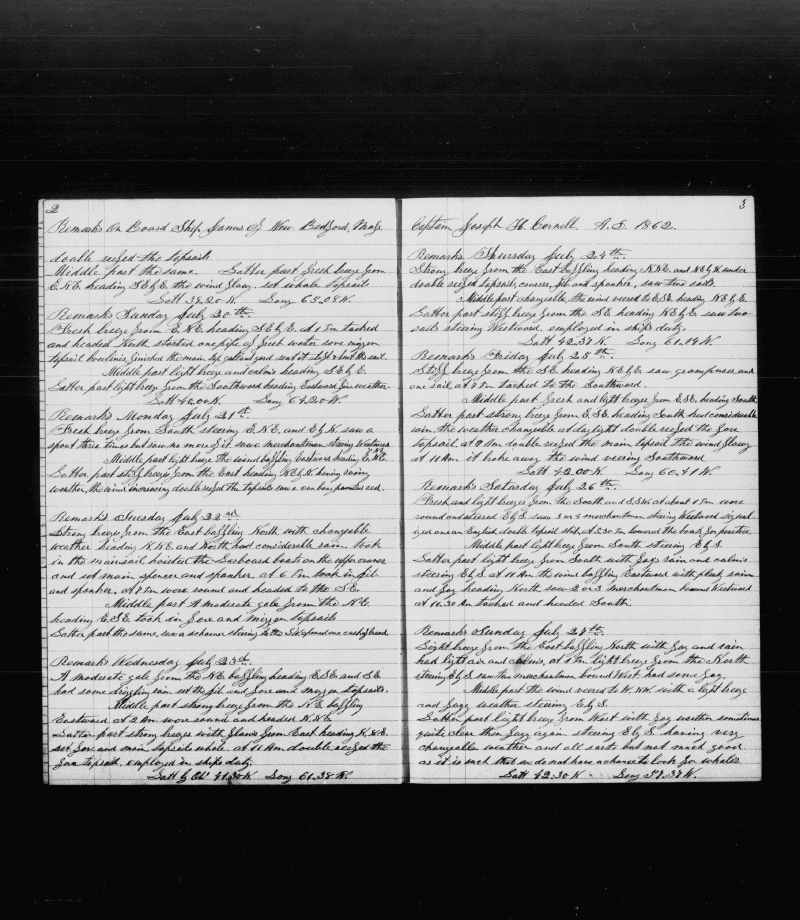 2
Remarks on Board Ship Janus of New Bedford, Mass
double reefed the topsails
Middle part the same. Latter part fresh breeze from
E.N.E. heading S.E by E. the wind flawy, set whole topsails
Latt 39.20 N Long 63.28 W.
Remarks Sunday July 20th.
Fresh breeze from E.N.E. heading S.E by E. at 1 P.m tacked
and headed North, started one pipe of fresh water some mizzen
topsail bowlines, finished the main top gallant yard sent it aloft & bent the sail.
Middle part light breeze and calms heading S.E by E.
Latter part light breeze from the Southward heading Eastward fine weather.
Latt 40.00 N Long 64.20 W.
Remarks Monday July 21st.
Fresh breeze from South steering E.N.E. and E by N. saw a
spout three times but saw no more of it. saw a merchantman steering Westward
Middle part light breeze the wind baffling Eastward heading E.N.E.
Latter part stiff breeze from the East heading N.E by N. having rainy
weather, the wind increasing double reefed the topsails saw a can buoy painted red.
Remarks Tuesday July 22nd
Strong breeze from the East baffling North with changeable
weather heading N.N.E. and North had considerable rain. took
in the mainsail hoisted the Larboard boats on the upper cranes
and set main spencer and spanker at 6 P.m took in jib
and spanker, at 7 P.m wore round and headed to the S.E.
Middle part A moderate gale from the N.E.
heading E.S.E. took in fore and mizzen topsails
Latter part the same, saw a schooner steering to the S.W.
Remarks Wednesday July 23d.
A moderate gale from the N.E. baffling heading E.S.E. and S.E.
had some drizzling rain set the jib and fore and mizzen topsails.
Middle part strong breeze from the N.E. baffling
Eastward at 2 A.m wore round and headed N.N.E.
Latter part strong breezes with flaws from East heading N.N.E.
set fore and main topsails whole. at 11 A.m double reefed the
fore topsail employed in ships duty.
Latt by Ob 41.30 N Long 61.38 W.
3
Captain Joseph H. Cornell. A.D. 1862.
Remarks Thursday July 24th.
Strong breeze from the East baffling heading N.N.E. and N.E by N. under
double reefed topsails, courses, jib and spanker, saw two sails.
Middle part changeable, the wind veered to E.S.E. heading N.E by E.
Latter part stiff breeze from the S.E. heading N.E by E. saw two
sails steering Westward. employed in ships duty.
Latt 42.37 N. Long 61.14 W.
Remarks Friday July 25th.
Stiff breeze from the S.E. heading N.E by E. saw grampuses, and
one sail, at 7 P.m tacked to the Southward.
Middle part fresh and light breezes from E.S.E. heading South
Latter part strong breeze from E.S.E. heading South had considerable
rain the weather changeable at daylight double reefed the fore
topsail. at 9 A.m double reefed the main topsail the wind flawy
at 11 A.m it broke away the wind veering Southward
Latt 42.00 N. Long 60.41 W.
Remarks Saturday July 26th.
Fresh and light breezes from the South and S.S.W. at about 1 P.m wore
round and steered E by S. saw 3 or 4 merchantmen steering Westward
an English double topsail ship. at 5.30 P.m lowered the boats for practice.
Middle part light breeze from South steering E by S.
Latter part light breeze from South with fog & rain and calms
steering E by S. at 11 A.m. the wind baffling Eastward with rain
and fog heading North. saw 2 or 3 merchantmen bound Westward
at 11.30 A.m tacked and headed South.
Remarks Sunday July 27th.
Light breeze from the East baffling North with fog and rain
had light air and calms, at 4 P.m light breeze from the North
steering E by S. saw two merchantmen bound West had some fog.
Middle part the wind veered to W.NW. with a light breeze
and foggy weather steering E by S.
Latter part light breeze from West with fog weather sometimes
quite clear then foggy again steering E by S. having very
changeable weather and all sorts but not much good
as it is such that we do not have a chance to look for whales
Latt 42.30 N. Long 57.37 W.